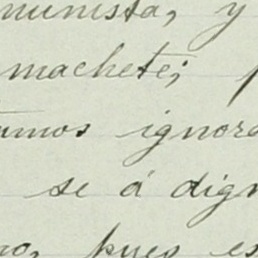 munista, y
machete;
amos ignora
se á dign
no, pues es